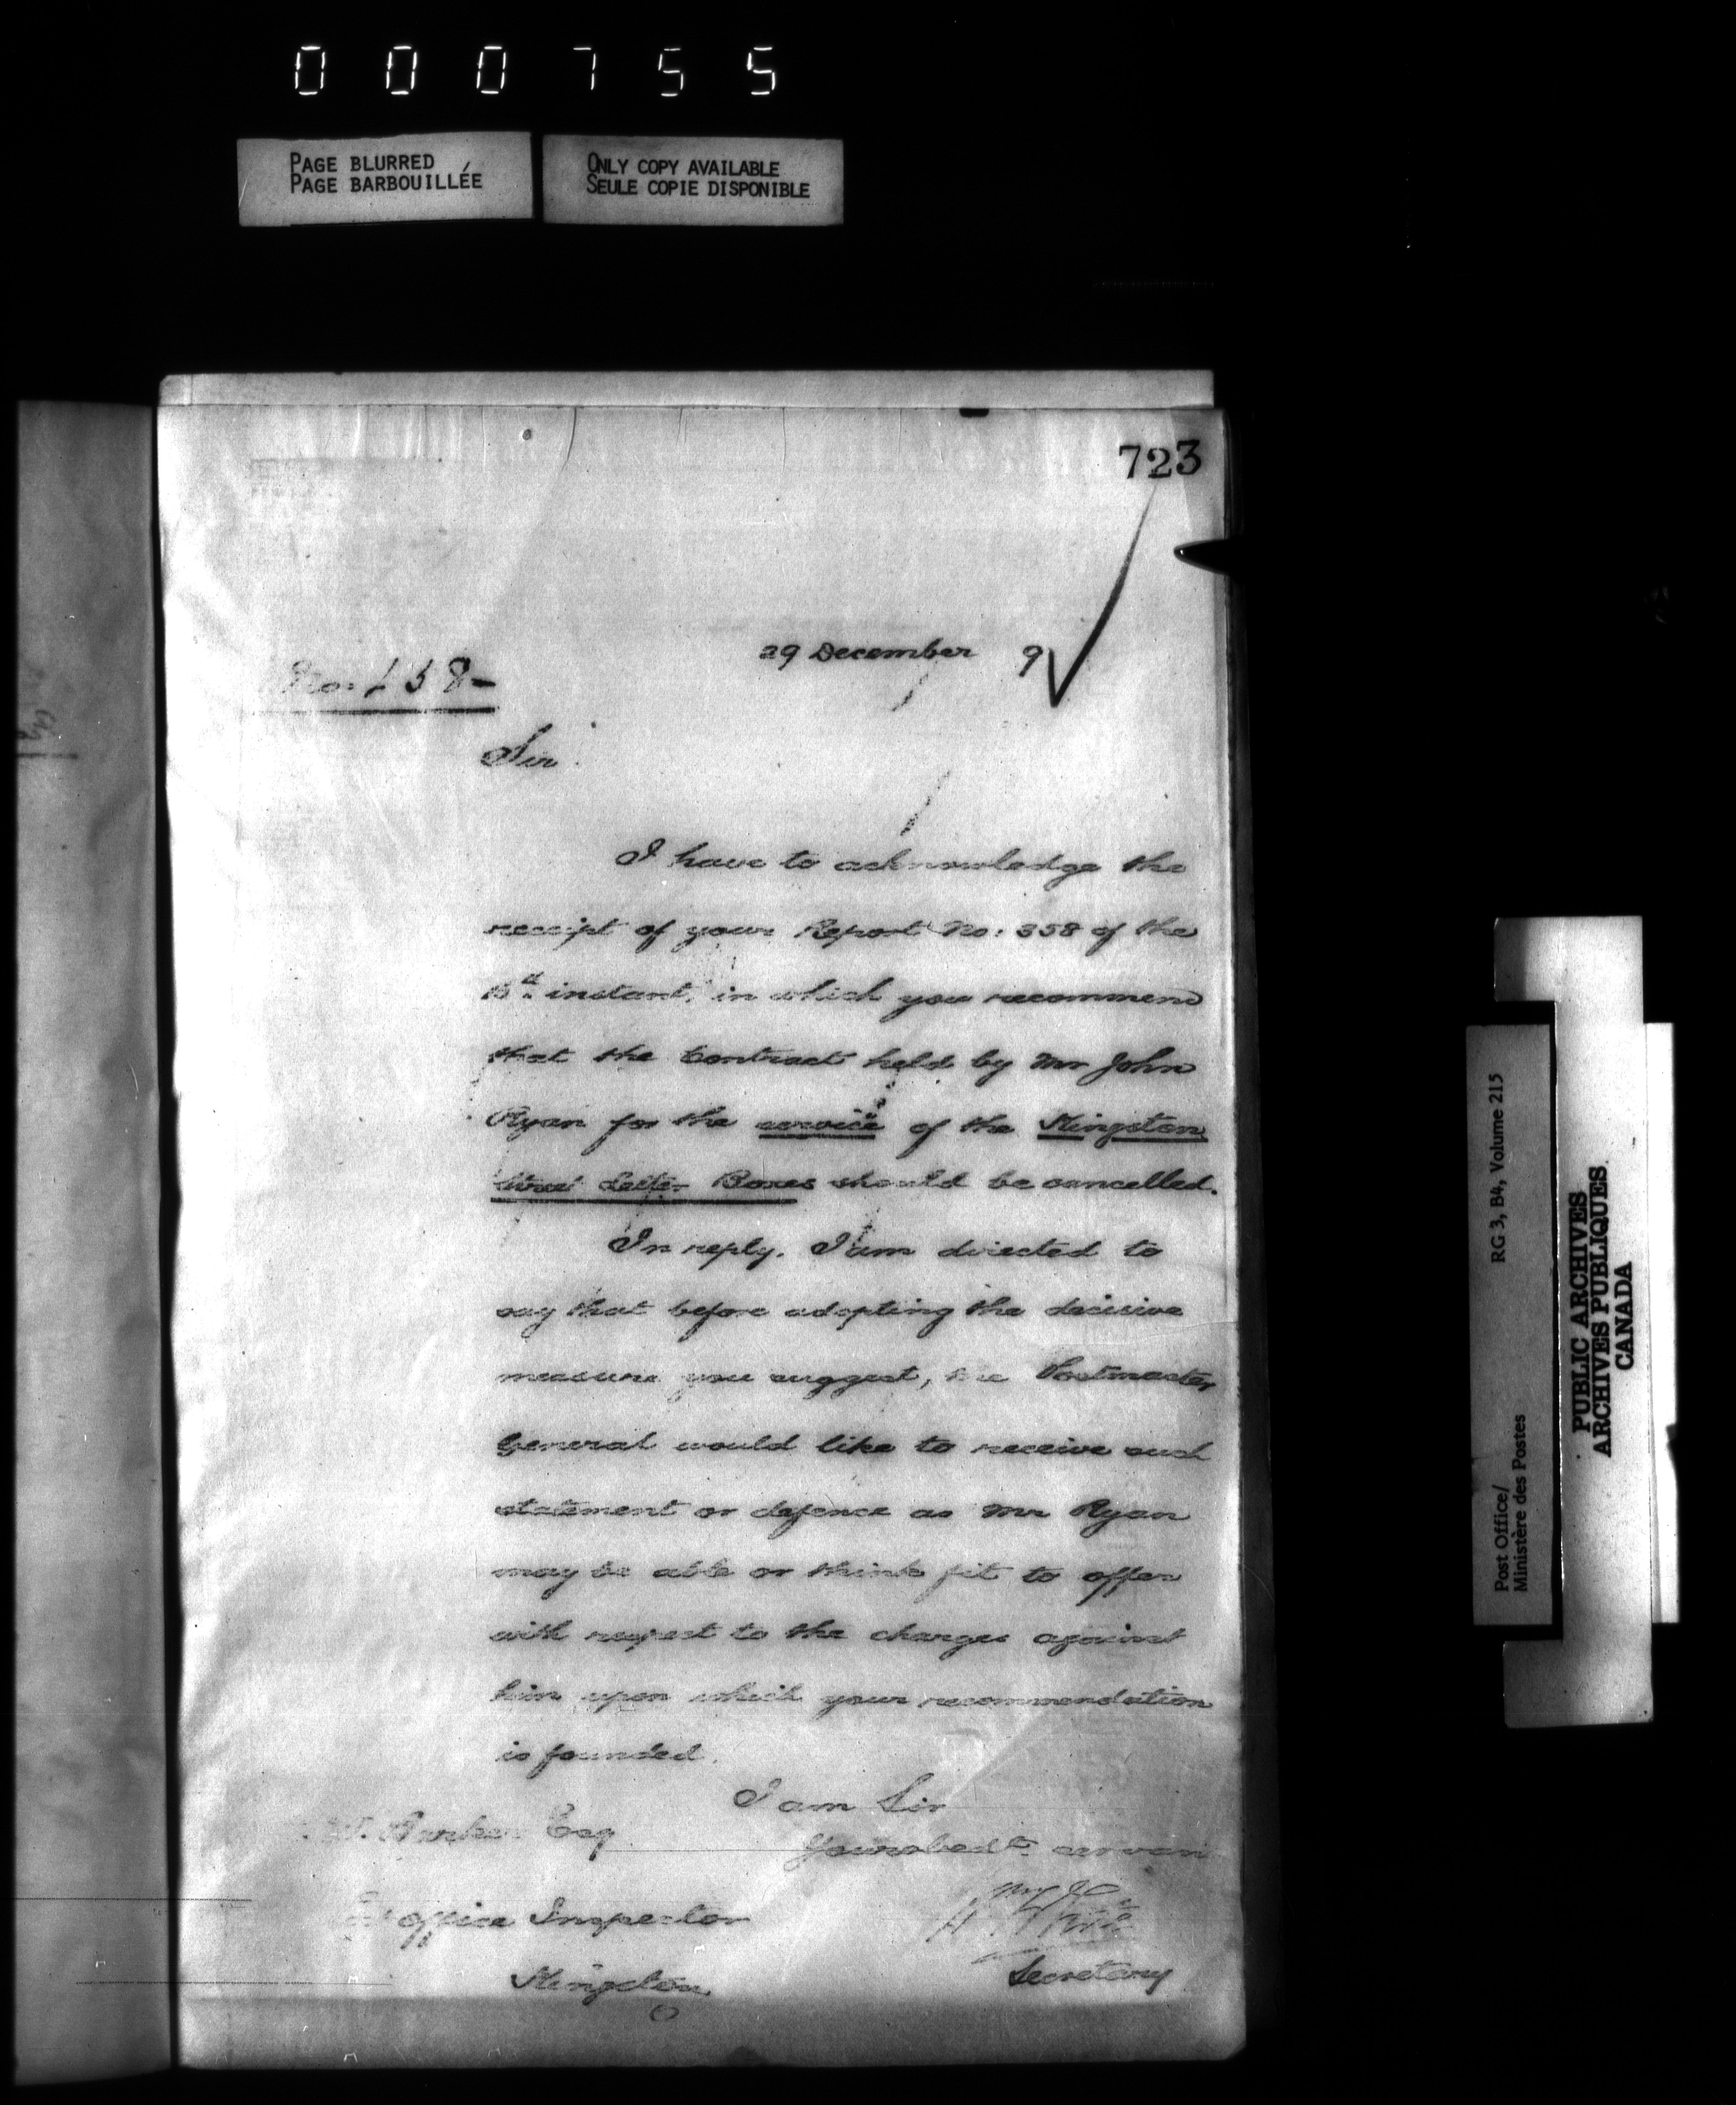 000755
PAGE BLURRED
PAGE BARBOUILLÉE
ONLY COPY AVAILABLE
SEULE COPIE DISPONIBLE
723
29 December 9
No: 358-
Sir
I have to acknowledge the
receipt of your Report No: 358 of the
instant, in which you recommend
that the Contract held by Mr John
Ryan for the service of the Kingston
Street Letter Boxes should be cancelled.
In reply, I am directed to
say that before adopting the decisive
measure you suggest, the Postmaster
General would like to receive such
statement or defence as Mr Ryan
may be able or think fit to offer
with respect to the charges against
him upon which your recommendation
is founded.
I am Sir
Your obedt. servant
Barker Esq
Office Inspector
Kingston
Secretary
RG 3, B4, Volume 215
Post Office/
Ministère des Postes
PUBLIC ARCHIVES
ARCHIVES PUBLIQUES
CANADA